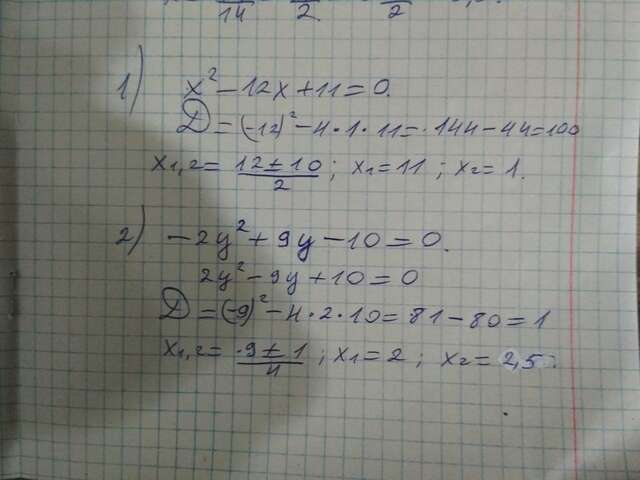 14 2 2
1) x² – 12x + 11 = 0.
D = (-12)² – 4 · 1 · 11 = 144 – 44 = 100
x1,2 = 12 ± 10 / 2 ; x1 = 11 ; x2 = 1.
2) – 2y² + 9y – 10 = 0.
2y² – 9y + 10 = 0
D = (-9)² – 4 · 2 · 10 = 81 – 80 = 1
x1,2 = 9 ± 1 / 4 ; x1 = 2 ; x2 = 2,5.